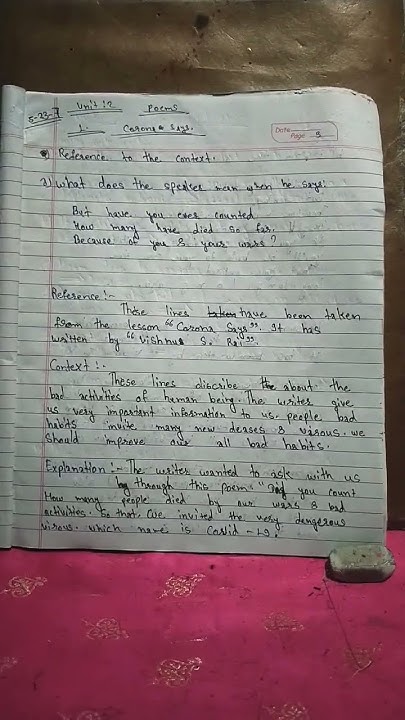 5-23-7
Unit :2 Poems
1. Corona Says.
Date
Page 5
Reference to the context.
a) What does the speaker mean when he says:
But have you ever counted
How many have died so far.
Because of you & your wars?
Reference:-
These lines taken have been taken
from the lesson "Corona Says". It has
written by "Vishnu S. Rai".
Context :-
These lines discribe the about the
bad activities of human being. The writers give
us very important information to us. people bad
habits invite many new deases & virous. we
should improve our all bad habits.
Explanation :- The writer wanted to ask with us
through this poem. "Did you count
How many people died by our wars & bad
activities. So that, we invited the very dangerous
virous. which name is Covid -19.